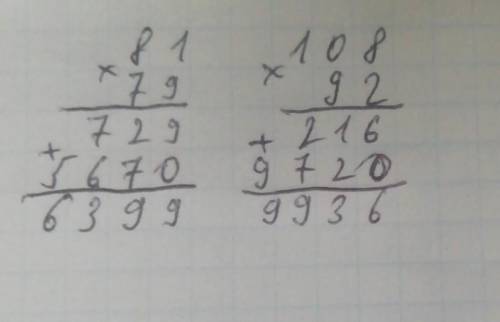 81
× 79
729
+ 5670
6399
108
× 92
+ 216
9720
9936